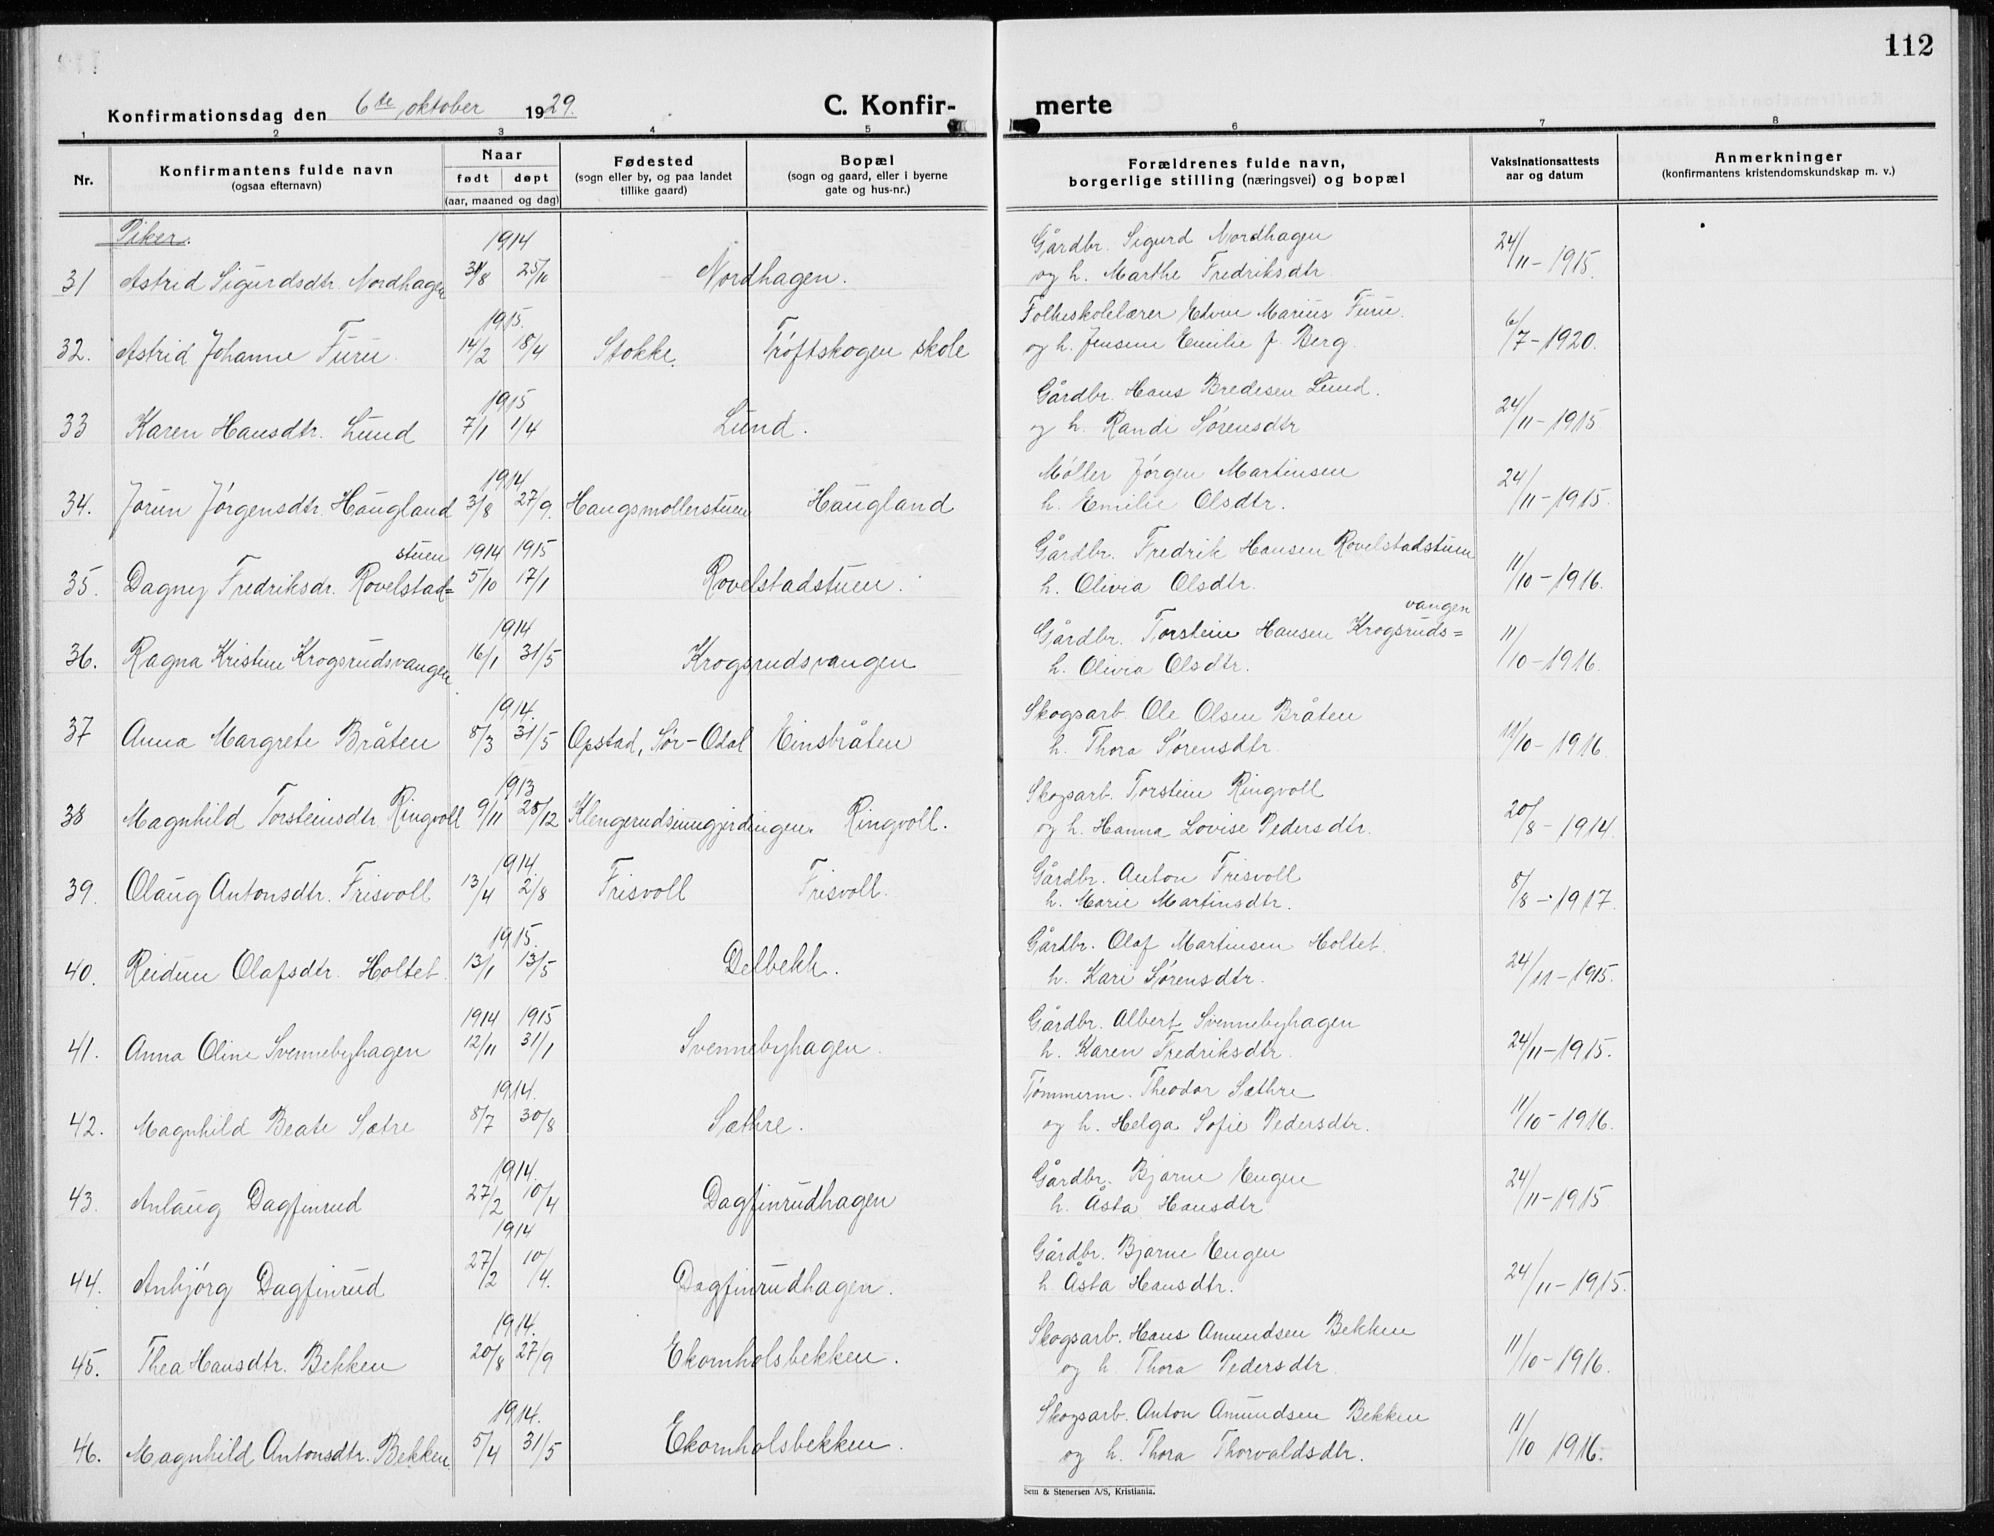 112
Konfirmationsdag den 6te oktober 1929.
C. Konfir-
merte
1 2 3 4 5 6 7 8
Nr.
Konfirmantens fulde navn
(ogsaa efternavn)
Naar
født døpt
(aar, maaned og dag)
Fødested
(sogn eller by, og paa landet
tillike gaard)
Bopæl
(sogn og gaard, eller i byerne
gate og hus-nr.)
Forældrenes fulde navn,
borgerlige stilling (næringsvei) og bopæl
Vaksinationsattests
aar og datum
Anmerkninger
(konfirmantens kristendomskundskap m. v.)
Piker.
1914 Gårdbr. Sigurd Nordhagen 24/11-1915.
31 Astrid Sigurdsdtr. Nordhagen 31/8 25/10 Nordhagen. og h. Marthe Fredriksdtr.
1915. Folkeskolelærer Edvin Marius Furu.
32. Astrid Johanne Furu. 14/2 18/4 Stokke. Trøftskogen skole og h. Jensine Emilie f. Berg. 6/7-1920.
1915 Gårdbr. Hans Bredesen Lund.
33 Karen Hansdtr. Lund 7/1 1/4 Lund. og h. Randi Sørensdtr 24/11-1915
1914 Møller Jørgen Martinsen
34. Jorun Jørgensdtr. Haugland 31/8 27/9. Haugsmøllerstuen Haugland h. Emilie Olsdtr. 24/11-1915.
stuen 1914 1915 Gårdbr. Fredrik Hansen Rovelstadstuen
35. Dagny Fredriksdr. Rovelstad= 5/10 17/1 Rovelstadstuen. h. Olivia Olsdtr. 11/10-1916.
vangen
1914 Gårdbr. Torstein Hansen Krogsruds=
36. Ragna Kristine Krogsrudsvangen 16/1 31/5 Krogsrudsvangen h. Olivia Olsdtr. 11/10-1916.
1914. Skogsarb. Ole Olsen Bråten
37 Anna Margrete Bråten 8/3 31/5 Opstad, Sør-Odal Einsbråten h. Thora Sørensdtr. 11/10-1916.
1913 Skogsarb. Torstein Ringvoll
38 Magnhild Torsteinsdtr. Ringvoll 9/11 28/12 Klengerudsinngjerdingen. Ringvoll. og h. Hanna Lovise Pedersdtr. 20/8-1914.
1914 Gårdbr. Anton Frisvoll
39. Olaug Antonsdtr. Frisvoll 13/4 2/8 Frisvoll Frisvoll. h. Marie Martinsdtr. 8/8-1917.
1915. Gårdbr. Olaf Martinsen Holtet.
40. Reidun Olafsdtr. Holtet. 13/1 13/5 Delbekk. h. Kari Sørensdtr. 24/11-1915.
1914 1915 Gårdbr. Albert Svennebyhagen
41. Anna Oline Svennebyhagen 12/11 31/1 Svennebyhagen. h. Karen Fredriksdtr. 24/11-1915.
1914. Tømmerm. Theodor Sæthre
42. Magnhild Beate Sætre 8/7 30/8 Sæthre. og h. Helga Sofie Pedersdtr. 11/10-1916.
1914. Gårdbr. Bjarne Engen
43. Anlaug Dagfinrud 27/2 10/4 Dagfinrudhagen h. Åsta Hansdtr 24/11-1915
1914 Gårdbr. Bjarne Engen
44. Anbjørg Dagfinrud 27/2 10/4. Dagfinrudhagen. h Åsta Hansdtr. 24/11-1915.
1914. Skogsarb. Hans Amundsen Bekken
45. Thea Hansdtr. Bekken 20/8 27/9 Ekornholsbekken. og h Thora Pedersdtr. 11/10-1916.
1914. Skogsarb. Anton Amundsen Bekken
46. Magnhild Antonsdtr. Bekken 5/4 31/5 Ekornholsbekken. og h. Thora Thorvaldsdtr. 11/10 1916.
Sem & Stenersen A/S, Kristiania.